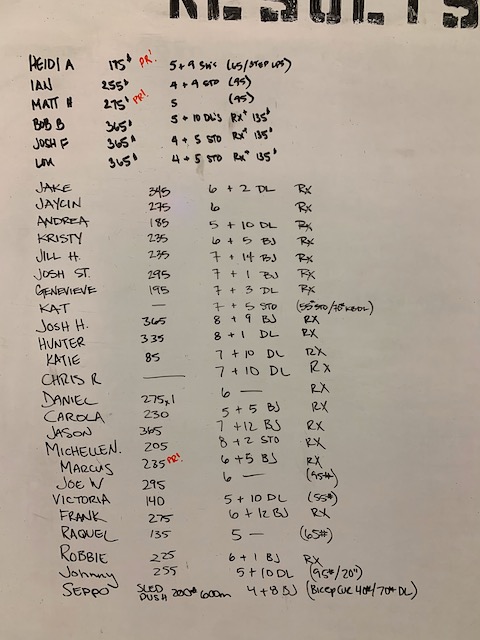 RESULTS
HEIDI A 175# PR! 5 + 9 (65/STEP UPS)
IAN 255# 4 + 9 STO (95)
MATT H 275# PR! 5 (95)
BOB B 365# 5 + 10 DL'S RX+ 135#
JOSH F 365# 4 + 5 STO RX+ 135#
365# 4 + 5 STO RX+ 135#
JAKE 345 6 + 2 DL RX
JAYLIN 275 6 RX
ANDREA 185 5 + 10 DL RX
KRISTY 235 6 + 5 BJ RX
JILL H. 235 7 + 14 BJ RX
JOSH ST. 295 7 + 1 BJ RX
GENEVIEVE 195 7 + 3 DL RX
KAT — 7 + 5 STO (55# STO/70# KBDL)
JOSH H. 365 8 + 9 BJ RX
HUNTER 335 8 + 1 DL RX
KATIE 85 7 + 10 DL RX
CHRIS R — 7 + 10 DL RX
DANIEL 275x1 6 — RX
CAROLA 230 5 + 5 BJ RX
JASON 365 7 + 12 BJ RX
MICHELLE N. 205 8 + 2 STO RX
MARCUS 235 PR! 6 + 5 BJ RX
JOE W 295 6 — (95#)
VICTORIA 140 5 + 10 DL (55#)
FRANK 275 6 + 12 BJ RX
RAQUEL 135 5 — (65#)
ROBBIE 225 6 + 1 BJ RX
Johnny 255 5 + 10 DL (95#/20")
SEPPO SLED PUSH 200# 600m 4 + 8 BJ (Bicep Cur 40#/70# DL)